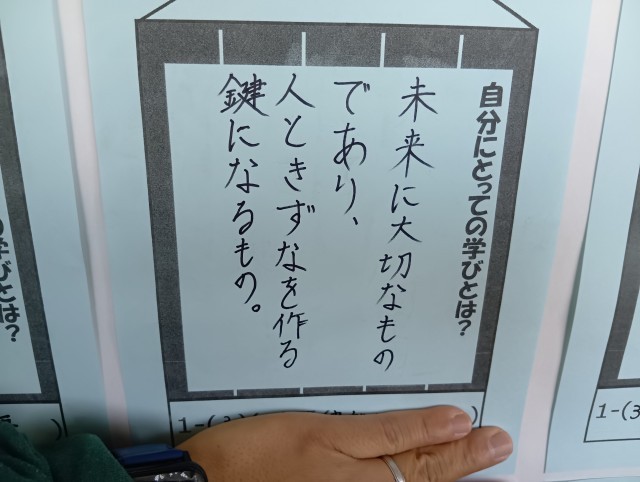 自分にとっての学びとは？
未来に大切なもの
であり、
人ときずなを作る
鍵になるもの。
1-(3
1-(3
の学びとは？